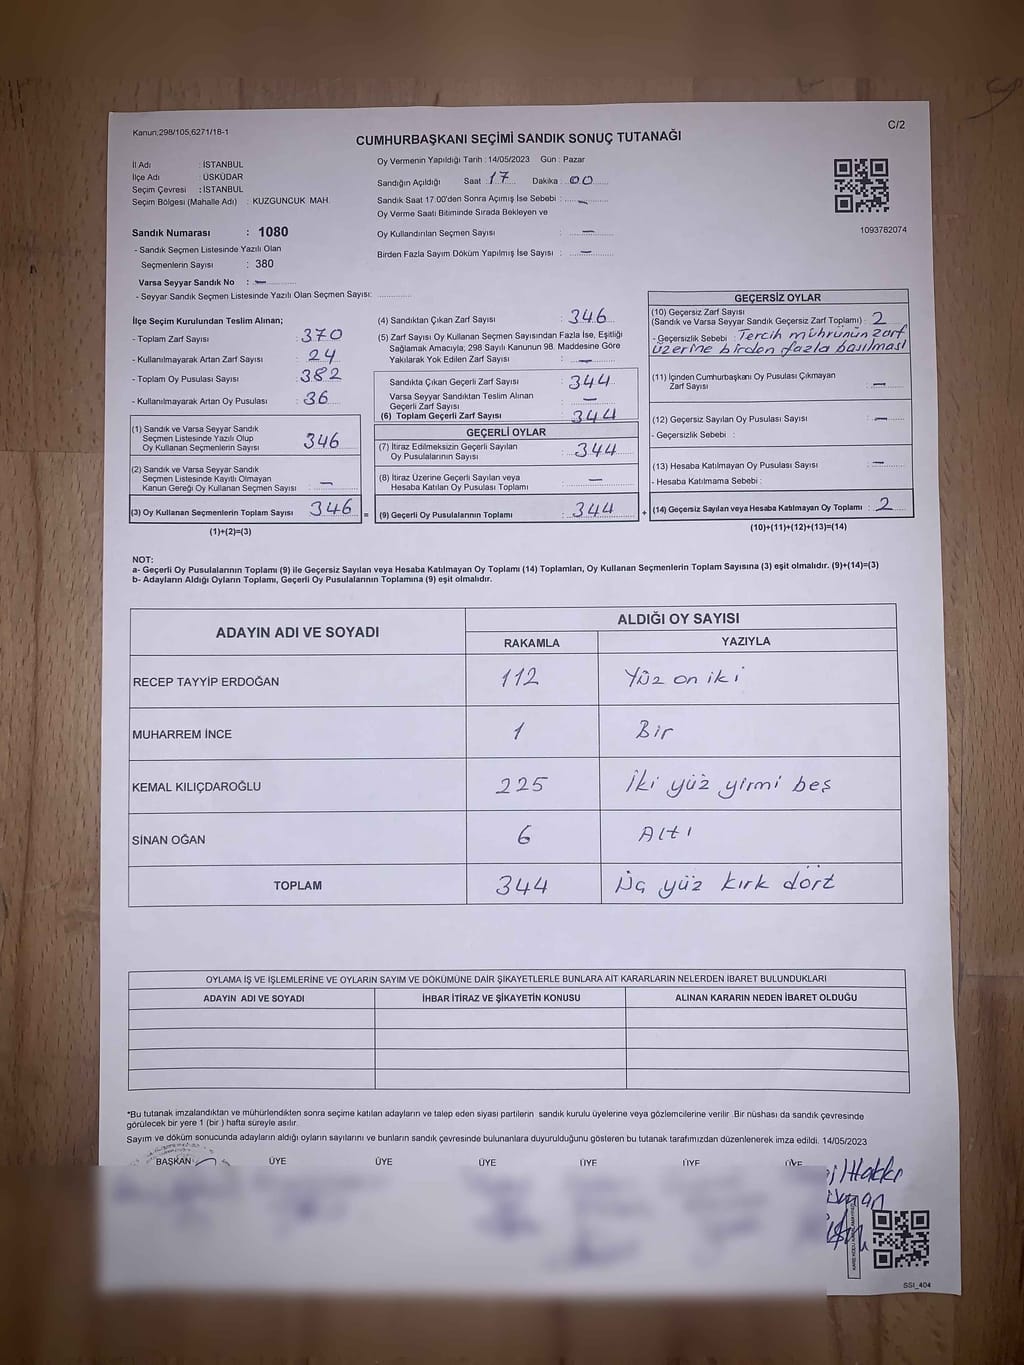 Kanun:298/105,6271/16-1
C/2
CUMHURBAŞKANI SEÇİMİ SANDIK SONUÇ TUTANAĞI
İl Adı : İSTANBUL
İlçe Adı : ÜSKÜDAR
Seçim Çevresi : İSTANBUL
Seçim Bölgesi (Mahalle Adı) : KUZGUNCUK MAH.
Oy Vermenin Yapıldığı Tarih : 14/05/2023 Gün : Pazar
Sandığın Açıldığı Saat : 17 Dakika : 00
Sandık Saat 17.00'den Sonra Açımış İse Sebebi : —
Oy Verme Saati Bitiminde Sırada Bekleyen ve
Oy Kullandırılan Seçmen Sayısı : —
Birden Fazla Sayım Döküm Yapılmış İse Sayısı : —
1093782074
Sandık Numarası : 1080
- Sandık Seçmen Listesinde Yazılı Olan
Seçmenlerin Sayısı : 380
Varsa Seyyar Sandık No : —
- Seyyar Sandık Seçmen Listesinde Yazılı Olan Seçmen Sayısı:
İlçe Seçim Kurulundan Teslim Alınan;
- Toplam Zarf Sayısı : 370
- Kullanılmayarak Artan Zarf Sayısı : 24
- Toplam Oy Pusulası Sayısı : 382
- Kullanılmayarak Artan Oy Pusulası : 36
(1) Sandık ve Varsa Seyyar Sandık
Seçmen Listesinde Yazılı Olup
Oy Kullanan Seçmenlerin Sayısı : 346
(2) Sandık ve Varsa Seyyar Sandık
Seçmen Listesinde Kayıtlı Olmayan
Kanun Gereği Oy Kullanan Seçmen Sayısı : —
(3) Oy Kullanan Seçmenlerin Toplam Sayısı : 346 =
(1)+(2)=(3)
(4) Sandıktan Çıkan Zarf Sayısı : 346
(5) Zarf Sayısı Oy Kullanan Seçmen Sayısından Fazla İse, Eşitliği
Sağlamak Amacıyla, 298 Sayılı Kanunun 98. Maddesine Göre
Yakılarak Yok Edilen Zarf Sayısı : —
Sandıkta Çıkan Geçerli Zarf Sayısı : 344
Varsa Seyyar Sandıktan Teslim Alınan
Geçerli Zarf Sayısı : —
(6) Toplam Geçerli Zarf Sayısı : 344
GEÇERLİ OYLAR
(7) İtiraz Edilmeksizin Geçerli Sayılan
Oy Pusulalarının Sayısı : 344
(8) İtiraz Üzerine Geçerli Sayılan veya
Hesaba Katılan Oy Pusulası Toplamı : —
(9) Geçerli Oy Pusulalarının Toplamı : 344 +
GEÇERSİZ OYLAR
(10) Geçersiz Zarf Sayısı
(Sandık ve Varsa Seyyar Sandık Geçersiz Zarf Toplamı) : 2
- Geçersizlik Sebebi : Tercih mührünün zarf
üzerine birden fazla basılması
(11) İçinden Cumhurbaşkanı Oy Pusulası Çıkmayan
Zarf Sayısı : —
(12) Geçersiz Sayılan Oy Pusulası Sayısı : —
- Geçersizlik Sebebi :
(13) Hesaba Katılmayan Oy Pusulası Sayısı : —
- Hesaba Katılmama Sebebi :
(14) Geçersiz Sayılan veya Hesaba Katılmayan Oy Toplamı : 2
(10)+(11)+(12)+(13)=(14)
NOT:
a- Geçerli Oy Pusulalarının Toplamı (9) ile Geçersiz Sayılan veya Hesaba Katılmayan Oy Toplamı (14) Toplamları, Oy Kullanan Seçmenlerin Toplam Sayısına (3) eşit olmalıdır. (9)+(14)=(3)
b- Adayların Aldığı Oyların Toplamı, Geçerli Oy Pusulalarının Toplamına (9) eşit olmalıdır.
ADAYIN ADI VE SOYADI
ALDIĞI OY SAYISI
RAKAMLA YAZIYLA
RECEP TAYYİP ERDOĞAN 112 Yüz on iki
MUHARREM İNCE 1 Bir
KEMAL KILIÇDAROĞLU 225 İki yüz yirmi beş
SİNAN OĞAN 6 Altı
TOPLAM 344 Üç yüz kırk dört
OYLAMA İŞ VE İŞLEMLERİNE VE OYLARIN SAYIM VE DÖKÜMÜNE DAİR ŞİKAYETLERLE BUNLARA AİT KARARLARIN NELERDEN İBARET BULUNDUKLARI
ADAYIN ADI VE SOYADI İHBAR İTİRAZ VE ŞİKAYETİN KONUSU ALINAN KARARIN NEDEN İBARET OLDUĞU
*Bu tutanak imzalandıktan ve mühürlendikten sonra seçime katılan adayların ve talep eden siyasi partilerin sandık kurulu üyelerine veya gözlemcilerine verilir. Bir nüshası da sandık çevresinde
görülecek bir yere 1 (bir ) hafta süreyle asılır.
Sayım ve döküm sonucunda adayların aldığı oyların sayılarını ve bunların sandık çevresinde bulunanlara duyurulduğunu gösteren bu tutanak tarafımızdan düzenlenerek imza edildi. 14/05/2023
BAŞKAN ÜYE ÜYE ÜYE ÜYE ÜYE ÜYE
Hakkı
SSI_404